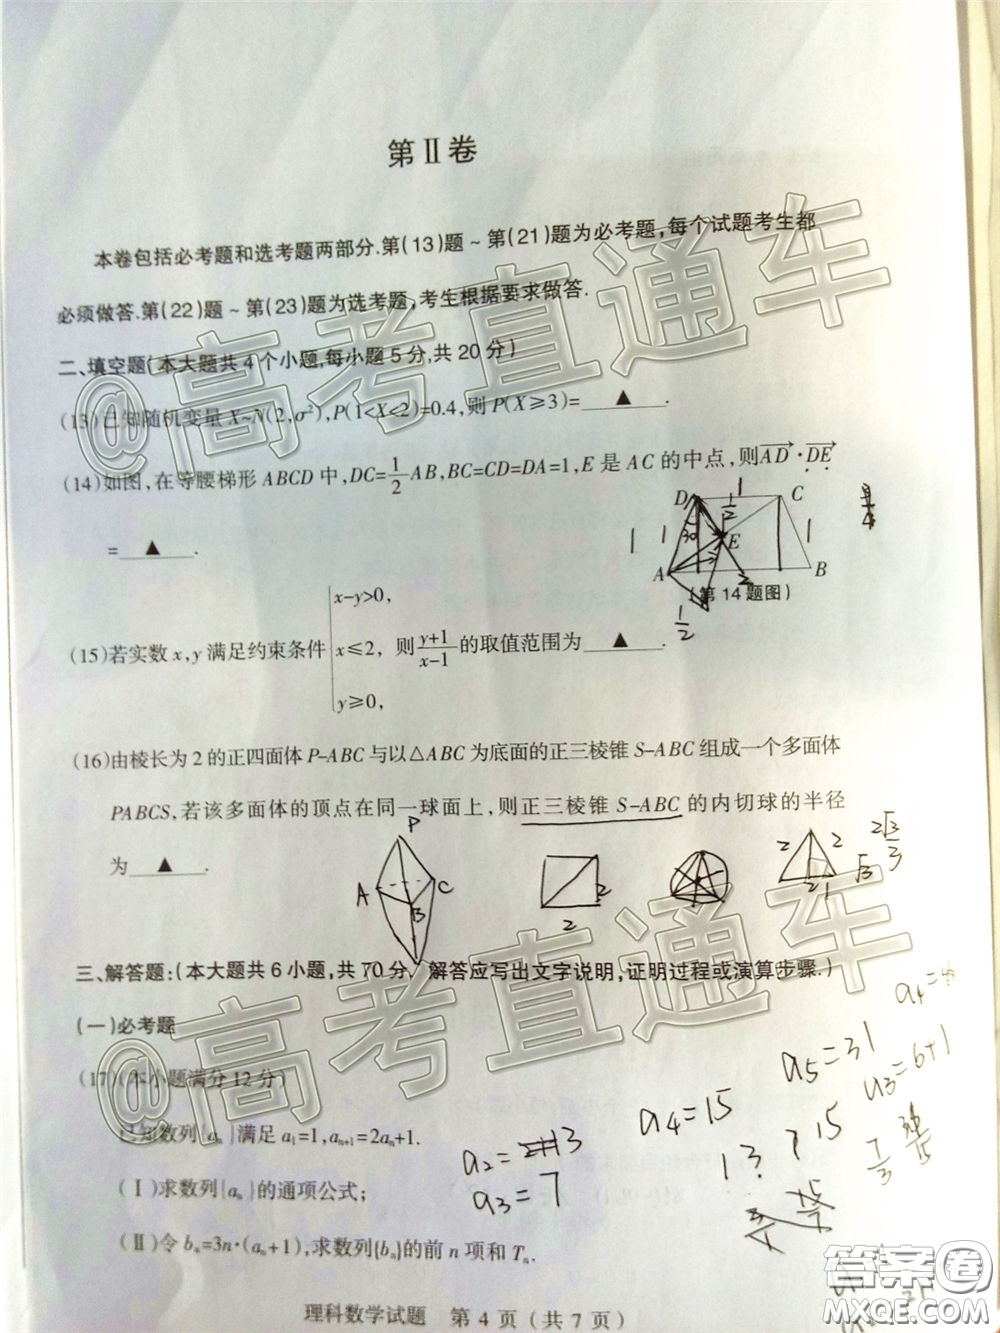 第Ⅱ卷
本卷包括必考题和选考题两部分.第(13)题~第(21)题为必考题,每个试题考生都
必须做答.第(22)题~第(23)题为选考题,考生根据要求做答.
二、填空题(本大题共4个小题,每小题5分,共20分)
(13)已知随机变量X~N(2,σ²),P(1<X<2)=0.4,则P(X≥3)=____▲____.
(14)如图,在等腰梯形ABCD中,DC=1/2AB,BC=CD=DA=1,E是AC的中点,则AD·DE
=____▲____.
D
C
E
A
B
1
1/2
1
1
1
30
2
1/2
3/4
(第14题图)
x-y>0,
(15)若实数x,y满足约束条件 x≤2, 则(y+1)/(x-1)的取值范围为____▲____.
y≥0,
(16)由棱长为2的正四面体P-ABC与以△ABC为底面的正三棱锥S-ABC组成一个多面体
PABCS,若该多面体的顶点在同一球面上,则正三棱锥S-ABC的内切球的半径
为____▲____.
P
A
B
C
2
2
2
2
2
1
√3
2√3/3
三、解答题:(本大题共6小题,共70分,解答应写出文字说明,证明过程或演算步骤.)
(一)必考题
(17)(本小题满分12分)
已知数列{aₙ}满足a₁=1,aₙ₊₁=2aₙ+1.
(Ⅰ)求数列{aₙ}的通项公式;
(Ⅱ)令bₙ=3n·(aₙ+1),求数列{bₙ}的前n项和Tₙ.
a₂=3
a₃=7
a₄=15
a₅=31
a₃=6+1
1 3 7 15
理科数学试题 第4页(共7页)
@高考直通车
@高考直通车
答案圈
MXQE.COM